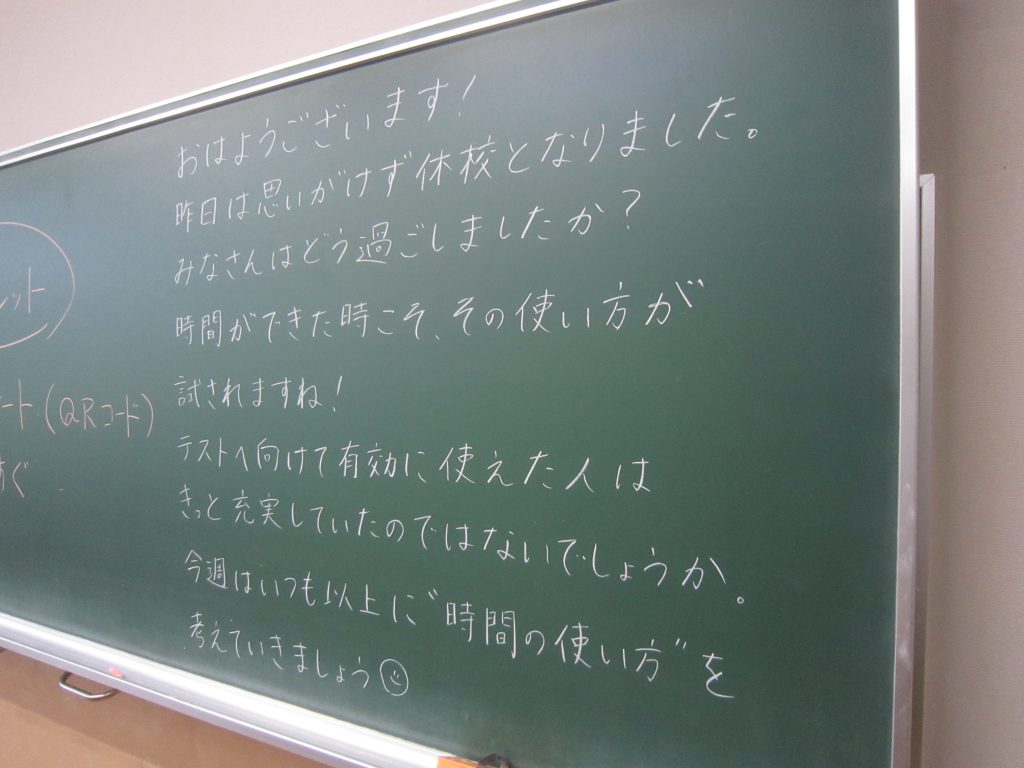 レット
ート(QRコード)
おはようございます!
昨日は思いがけず休核となりました。
みなさんはどう過ごしましたか?
時間ができた時こそ、その使い方が
試されますね!
テストへ向けて有効に使えた人は
きっと充実していたのではないでしょうか。
今週はいつも以上に"時間の使い方"を
考えていきましょう